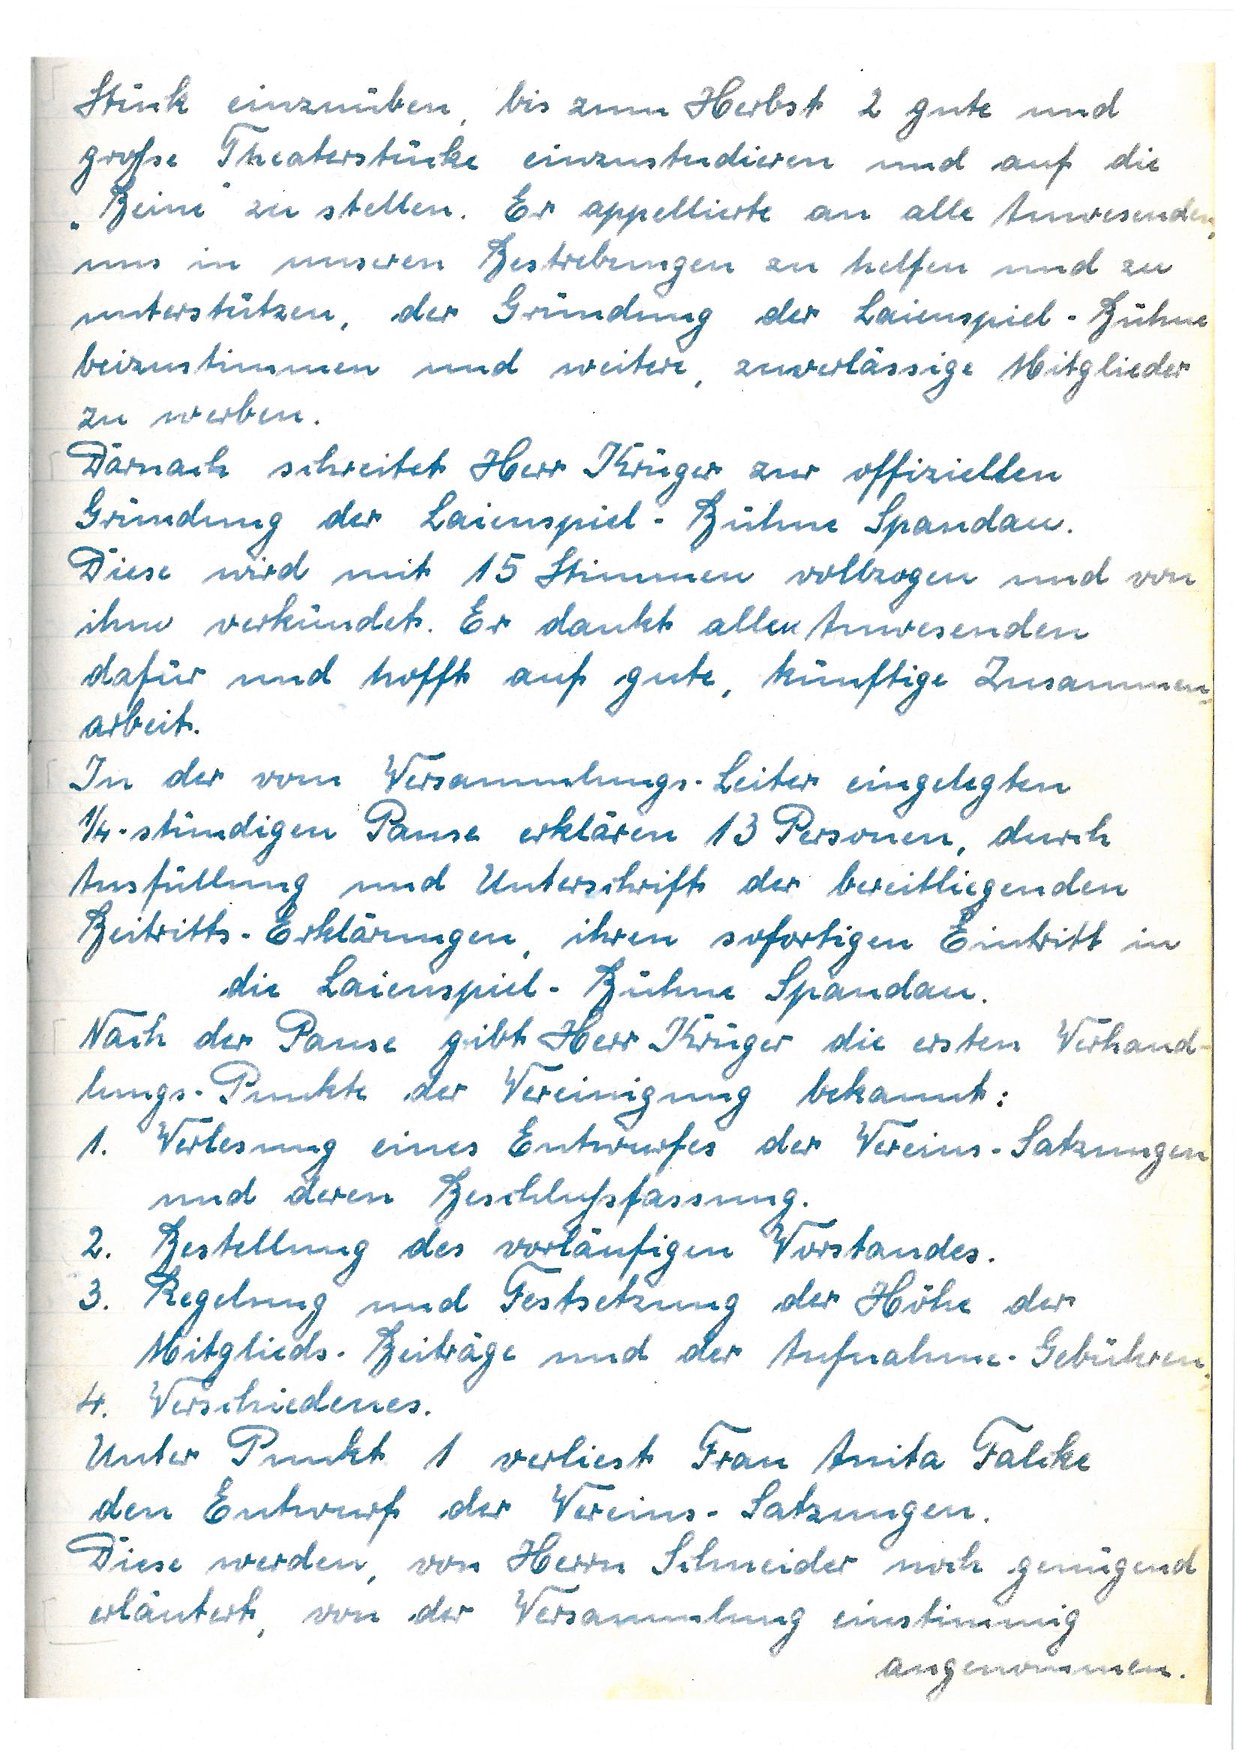 Stück einzuüben, bis zum Herbst 2 gute und
große Theaterstücke einzustudieren und auf die
„Beine" zu stellen. Er appellierte an alle Anwesenden,
uns in unseren Bestrebungen zu helfen und zu
unterstützen, der Gründung der Laienspiel-Bühne
beizustimmen und weitere, zuverlässige Mitglieder
zu werben.
Darnach schreitet Herr Krüger zur offiziellen
Gründung der Laienspiel-Bühne Spandau.
Diese wird mit 15 Stimmen vollzogen und von
ihm verkündet. Er dankt allen Anwesenden
dafür und hofft auf gute, künftige Zusammen=
arbeit.
In der vom Versammlungs-Leiter eingelegten
1/4-stündigen Pause erklären 13 Personen, durch
Ausfüllung und Unterschrift der bereitliegenden
Beitritts-Erklärungen, ihren sofortigen Eintritt in
die Laienspiel-Bühne Spandau.
Nach der Pause gibt Herr Krüger die ersten Verhand-
lungs-Punkte der Vereinigung bekannt:
1. Verlesung eines Entwurfes der Vereins-Satzungen
und deren Beschlußfassung.
2. Bestellung des vorläufigen Vorstandes.
3. Regelung und Festsetzung der Höhe der
Mitglieds-Beiträge und der Aufnahme-Gebühren.
4. Verschiedenes.
Unter Punkt 1 verliest Frau Anita Falcke
den Entwurf der Vereins-Satzungen.
Diese werden, von Herrn Schneider noch genügend
erläutert, von der Versammlung einstimmig
angenommen.